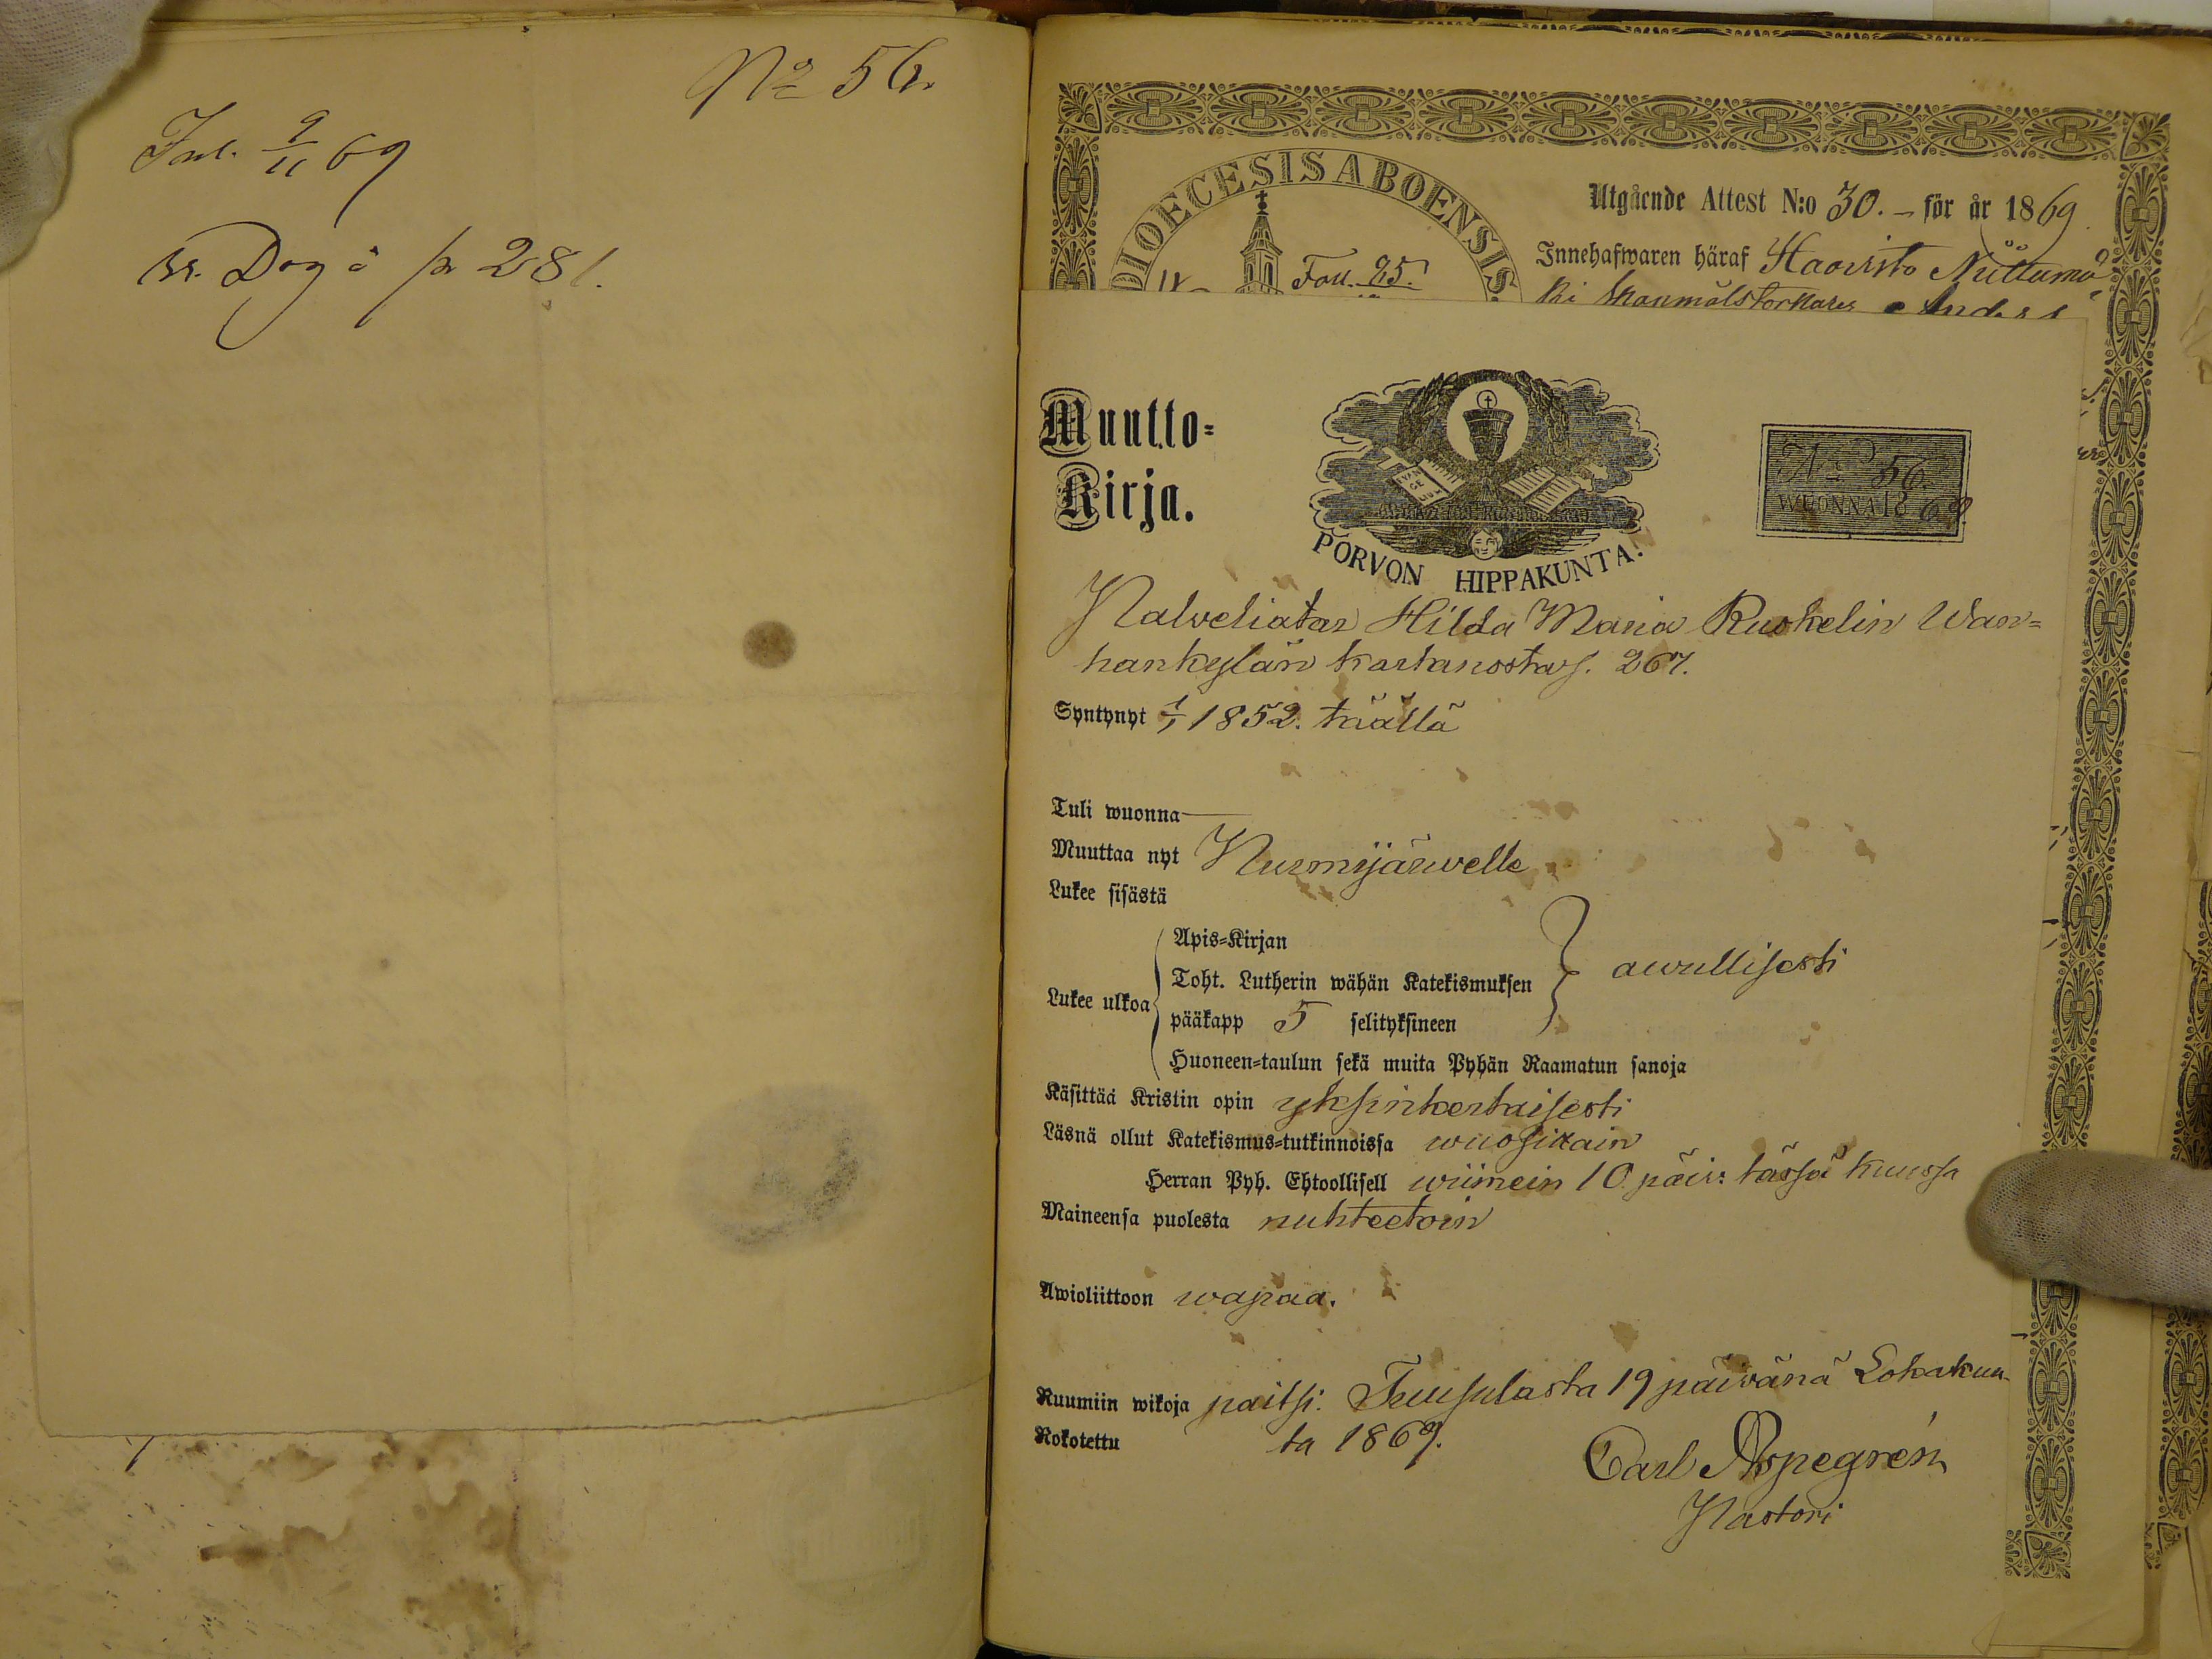 No 56.
Inl. 9/11 69
Br. Dog å p 281.
DIOECESIS ABOENSIS
Fol. 25.
Utgående Attest N:o 30. – för år 1869
Innehafwaren häraf Haavisto Nuttumä
ki Anders
Muutto-
Kirja.
EVAN
GE
LIUM
PORVON HIPPAKUNTA.
No 56.
WUONNA 1869.
Palveliatar Hilda Maria Ruskelin Wan-
hankylän kartanosta s. 267.
Syntynyt 1/1 1852. täällä
Tuli wuonna —
Muuttaa nyt Nurmijärwelle
Lukee sisästä
Apis-Kirjan
Toht. Lutherin wähän Katekismuksen
awullisesti
Lukee ulkoa
pääkapp 5 selityksineen
Huoneen-taulun sekä muita Pyhän Raamatun sanoja
Käsittää Kristin opin yksinkertaisesti
Läsnä ollut Katekismus-tutkinnoissa wuosittain
Herran Pyh. Ehtoollisell wiimein 10 päiv: tässä kuussa
Maineensa puolesta nuhteetoin
Awioliittoon wapaa.
Ruumiin wikoja paitsi. Tuusulasta 19 päivänä Lokakuu-
Rokotettu ta 1869.
Carl Aspegrén
Pastori